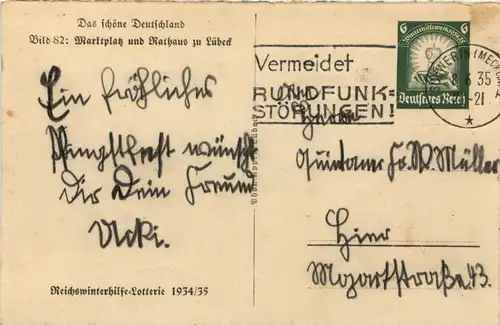 Das schöne Deutschland
Bild 82: Marktplatz und Rathaus zu Lübeck
Ein fröhliches
Pfingstfest wünscht
Dir Dein Freund
Acki.
Reichswinterhilfe-Lotterie 1934/35
Vermeidet
RUNDFUNK=
STÖRUNGEN!
6 6
Winterhilfswerk
Deutsches Reich
SCHWERIN (MECK
8.6.35
-21
Herrn
Quintaner Fr. W. Müller
Hier
Mozartstraße 43.